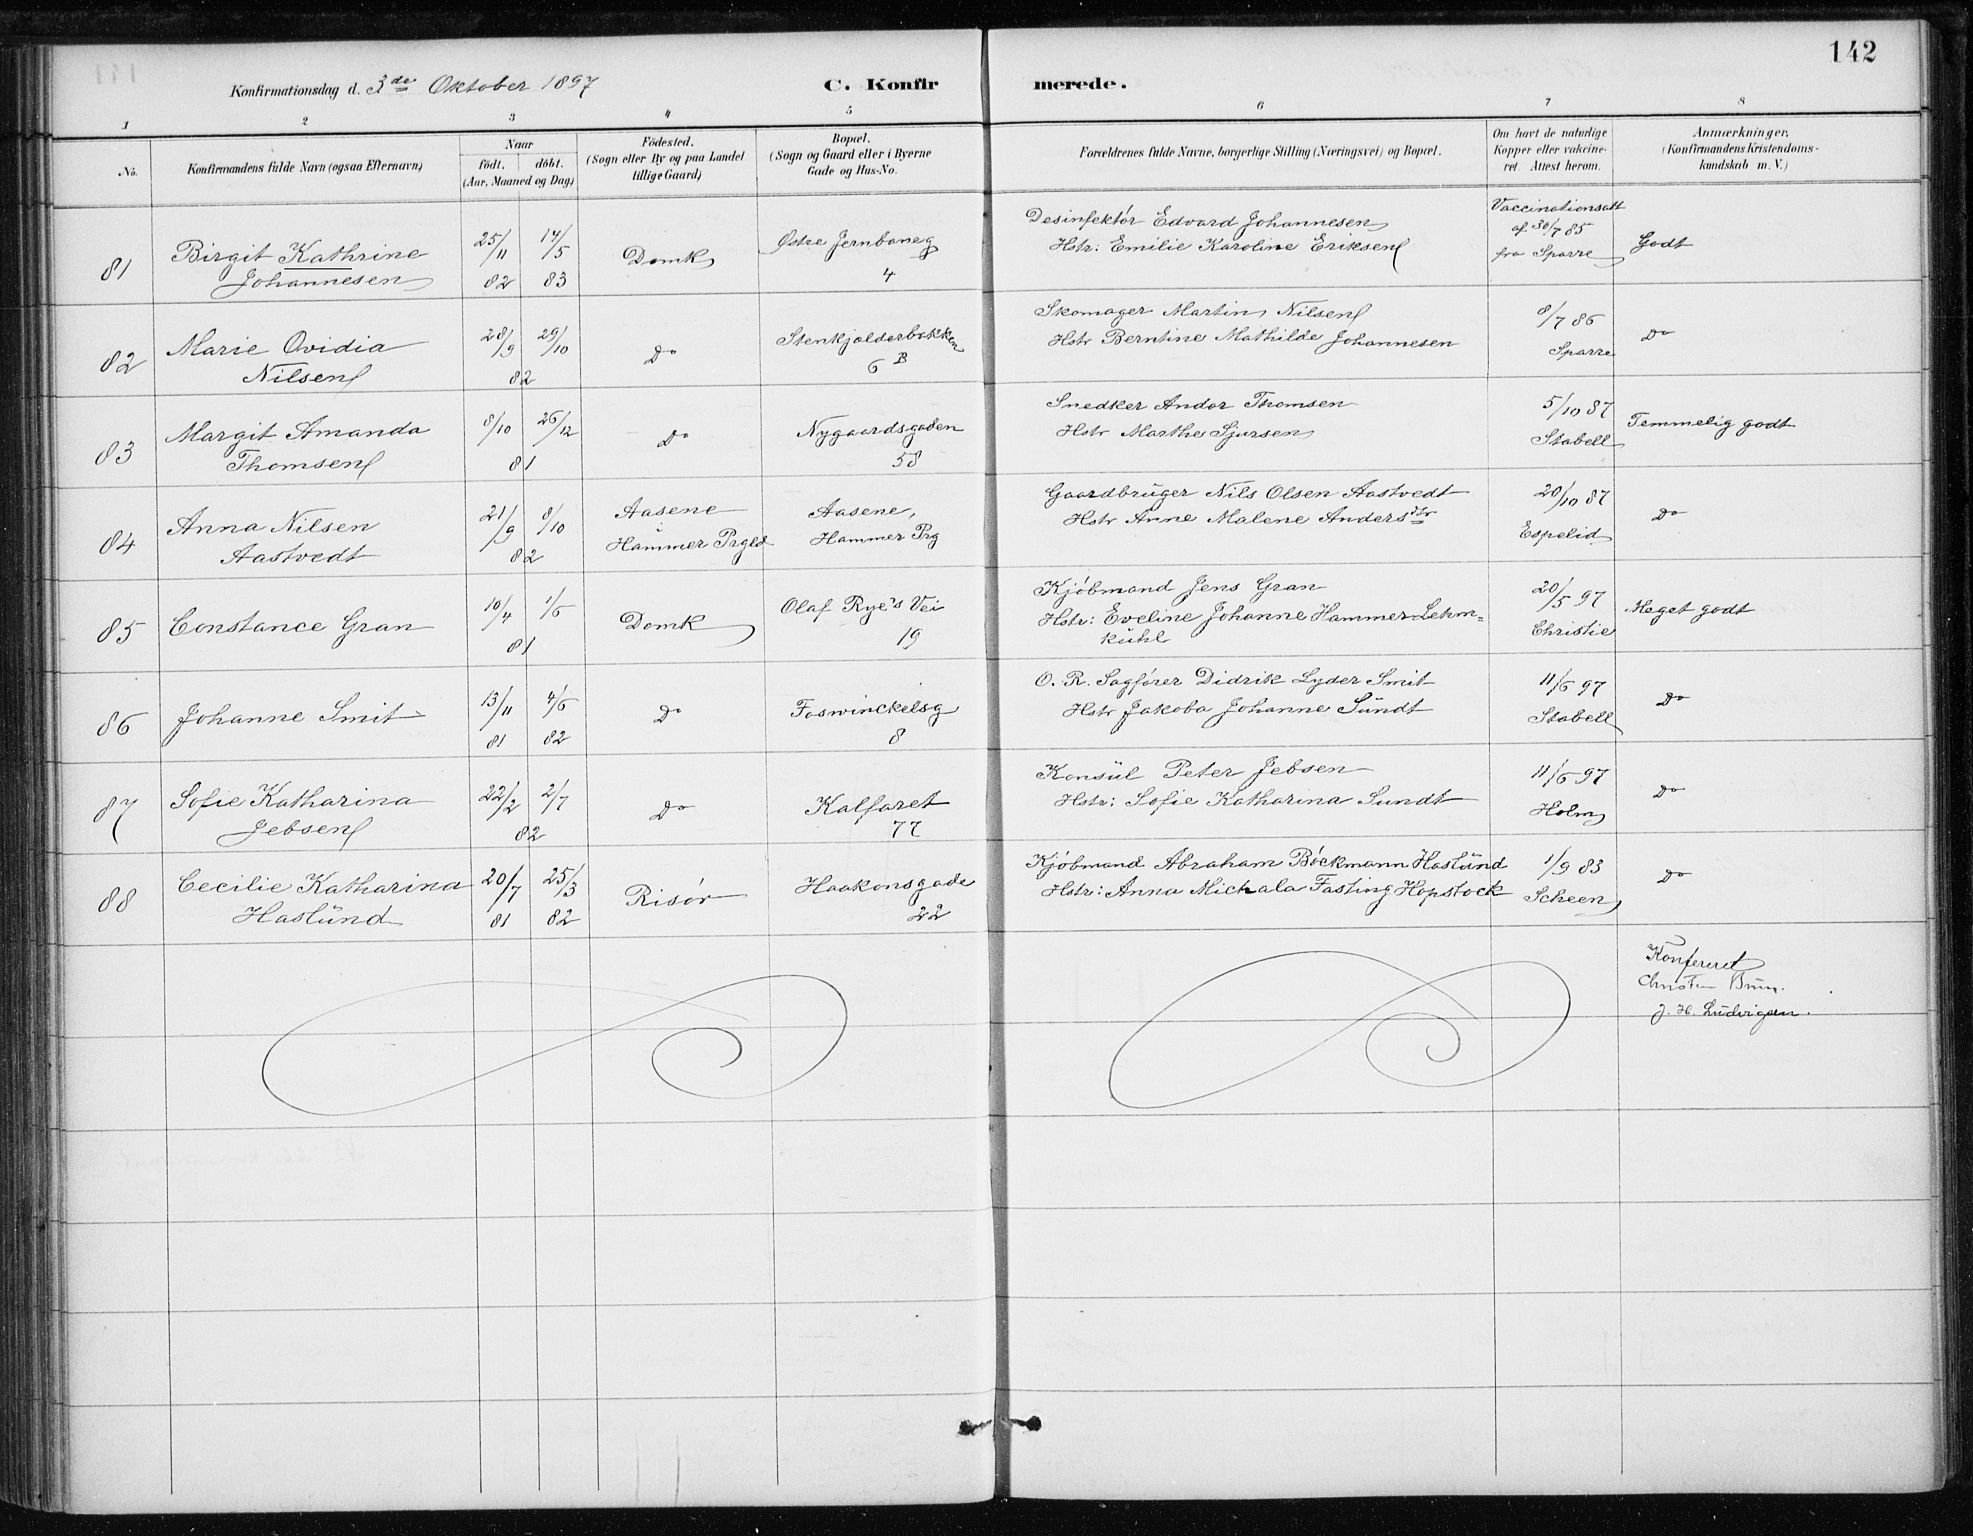 142
Konfirmationsdag d. 3de Oktober 1897
C. Konfirmerede.
1 2 3 4 5 6 7 8
No.
Konfirmandens fulde Navn (ogsaa Efternavn)
Naar
födt. döbt.
(Aar, Maaned og Dag)
Födested.
(Sogn eller By og paa Landet
tillige Gaard)
Bopæl.
(Sogn og Gaard eller i Byerne
Gade og Hus-No.
Forældrenes fulde Navne, borgerlige Stilling (Næringsvei) og Bopæl.
Om havt de naturlige
Kopper eller vakcine-
ret. Attest herom.
Anmærkninger.
(Konfirmandens Kristendoms-
kundskab m. V.)
81 Birgit Kathrine
Johannesen
25/11 82 14/5 83
Domk
Østre Jernbaneg
4
Desinfektör Edvard Johannesen
Hstr: Emilie Karoline Eriksen
Vaccinationsatt
af 30/7 85
fra Sparre
Godt
82 Marie Ovidia
Nilsen
28/9 29/10
82
Do
Stenkjælderbakken
6 B
Skomager Martin Nilsen
Hstr Berntine Mathilde Johannesen
8/7 86
Sparre
Do
83 Margit Amanda
Thomsen
8/10 26/12
81
Do
Nygaardsgaden
58
Snedker Andor Thomsen
Hstr Marthe Sjursen
5/10 87
Stabell
Temmelig godt
84 Anna Nilsen
Aastvedt
21/9 8/10
82
Aasene
Hammer Prgld
Aasene,
Hammer Prg
Gaardbruger Nils Olsen Aastvedt
Hstr Anne Malene Andersdtr
20/10 87
Espelid
Do
85 Constance Gran
10/4 1/6
81
Domk
Olaf Rye's Vei
19
Kjöbmand Jens Gran
Hstr: Eveline Johanne Hammer Lehm=
kuhl
20/5 97
Christie
Meget godt
86 Johanne Smit
13/11 81 4/6 82
Do
Foswinckelsg
8
O. R. Sagförer Didrik Lyder Smit
Hstr Jakoba Johanne Sundt
11/6 97
Stabell
Do
87 Sofie Katharina
Jebsen
22/2 2/7
82
Do
Kalfaret
77
Konsul Peter Jebsen
Hstr: Sofie Katharina Sundt
11/6 97
Holm
Do
88 Cecilie Katharina
Haslund
20/7 81 25/3 82
Risör
Haakonsgade
22
Kjöbmand Abraham Böckmann Haslund
Hstr: Anna Michala Fasting Hopstock
1/9 83
Scheen
Do
Konfereret
Christen Brun.
J. H. Ludvigsen.